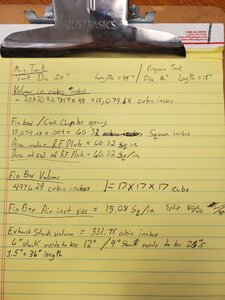 JUST BASICS
Main Tank
Tank Dia 20"   Length = 48"
Propane Tank
Dia 12"   Length = 18"
Volume in cubic inches
20x20x0.7854x48 = 15,079.68 cubic inches
15,079.68 x .004 = 60.32 Square inches
Area under RF Plate = 60.32 Sq/in
Area at end of RF Plate = 60.32 Sq/in
Fire Box Volume
4976.29 cubic inches   17x17x17 cube
Fire Box Air inlet size = 15.08 Sq/in   Split 80/20
Exhaust Stack volume = 331.75 cubic inches
6" stack needs to be 12" / 4" stack needs to be
3.5" = 36" length